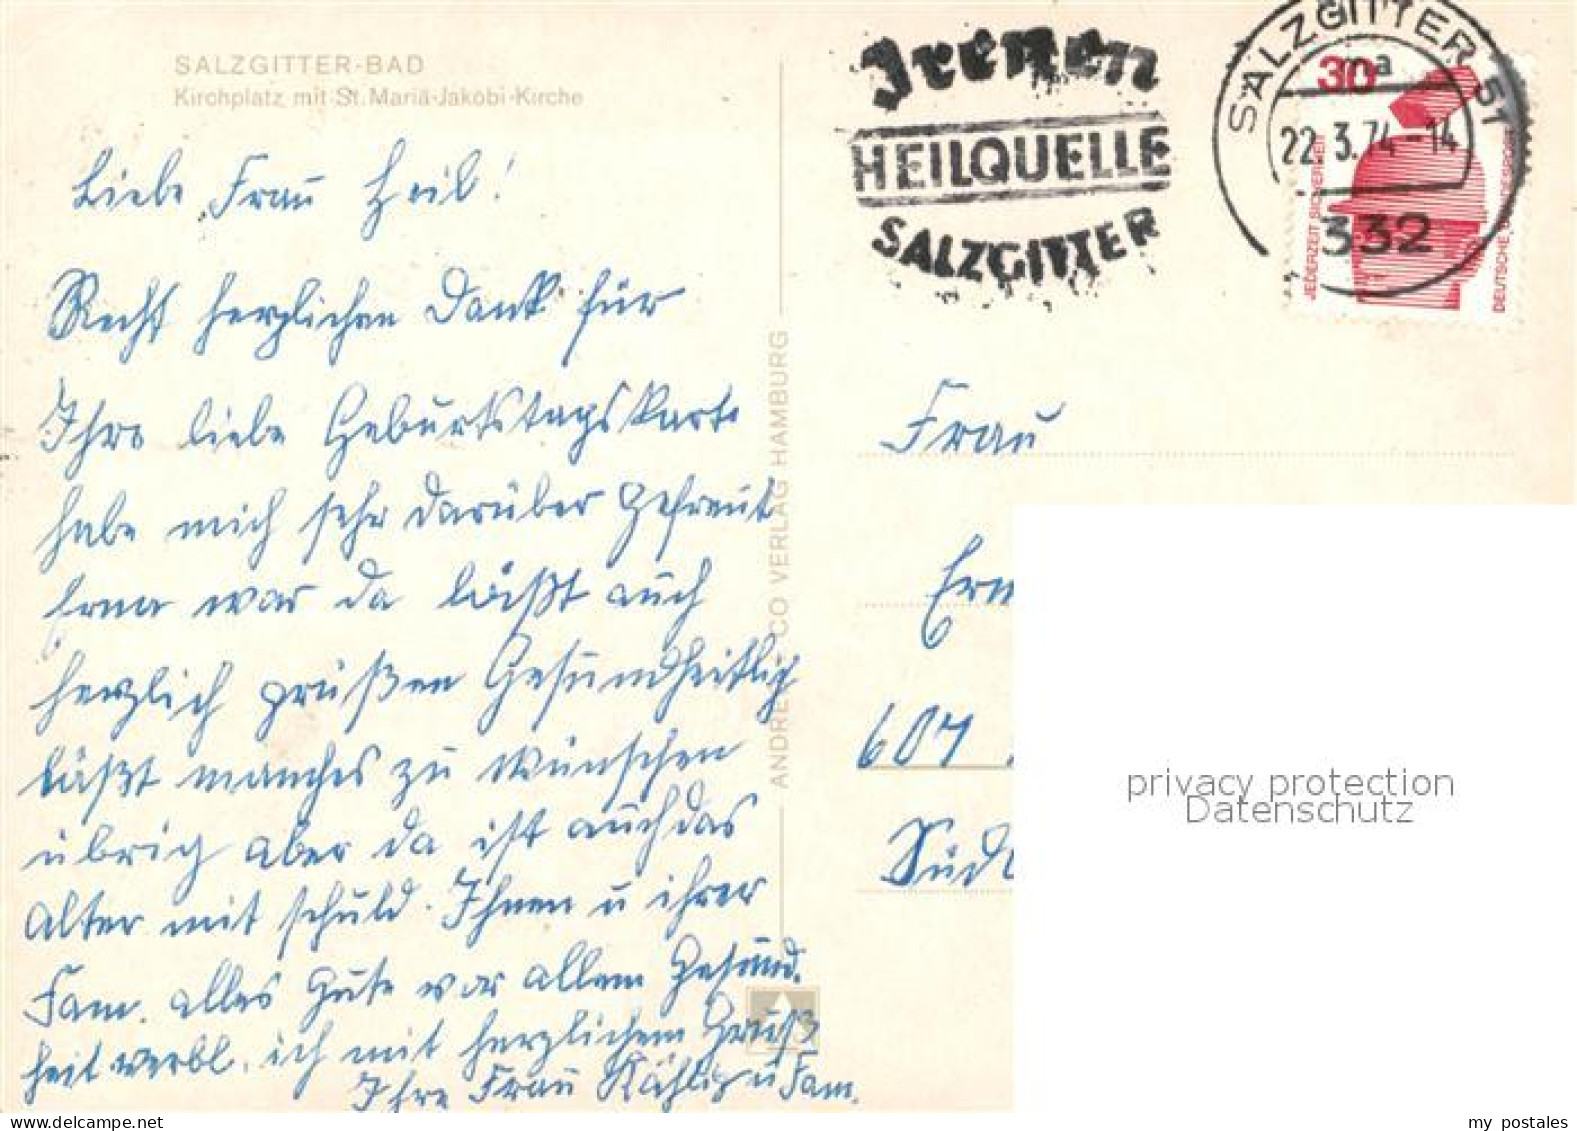 SALZGITTER-BAD
Kirchplatz mit St. Mariä-Jakobi-Kirche
Liebe Frau Heil!
Recht herzlichen Dank für
Ihre liebe Geburtstagskarte
habe mich sehr darüber gefreut
Erna war da läßt auch
herzlich grüßen Gesundheitlig
läßt manches zu wünschen
übrig aber da ist auch das
Alter mit schuld. Ihnen u ihrer
Fam. alles Gute vor allem Gesund.
heit verbl. ich mit herzlichem Gruß
Ihre Frau u Fam.
ANDRE CO VERLAG HAMBURG
Irenen
HEILQUELLE
SALZGITTER
SALZGITTER 51
ma
22.3.74-14
332
30
JEDERZEIT SICHERHEIT
DEUTSCHE BUNDESPOST
Frau
Ern
607
Südl
privacy protection
Datenschutz
my postales
delcampe.net